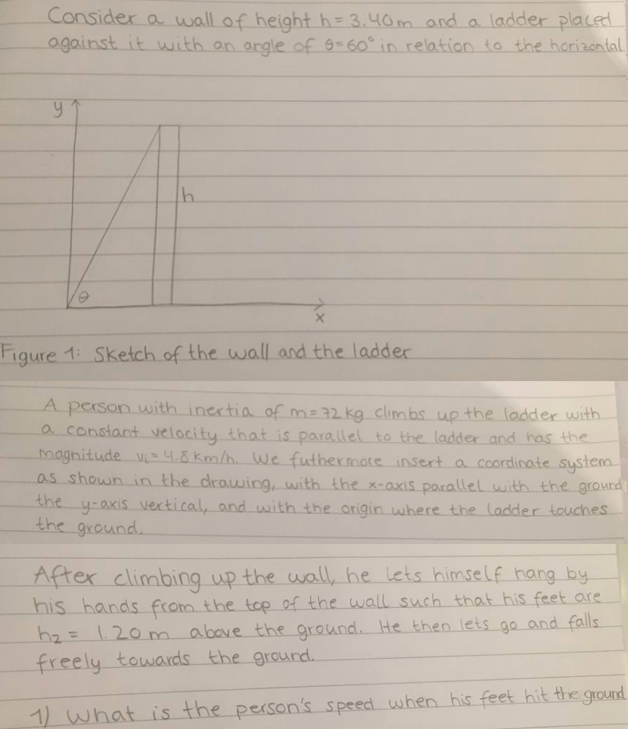 Consider a wall of height h = 3.40m and a ladder placed
against it with an angle of θ=60° in relation to the horizontal
y
h
θ
x
Figure 1: Sketch of the wall and the ladder
A person with inertia of m = 72 kg climbs up the ladder with
a constant velocity that is parallel to the ladder and has the
magnitude v₁ = 4.8 km/h. We futhermore insert a coordinate system
as shown in the drawing, with the x-axis parallel with the ground
the y-axis vertical, and with the origin where the ladder touches
the ground.
After climbing up the wall, he lets himself hang by
his hands from the top of the wall such that his feet are
h₂ = 1.20 m above the ground. He then lets go and falls
freely towards the ground.
1) What is the person's speed when his feet hit the ground